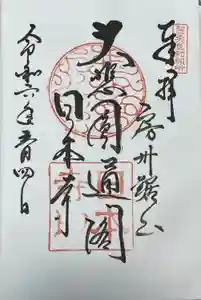 奉拝
房州鋸山
大悲圓通閣
日本寺
令和六年五月四日